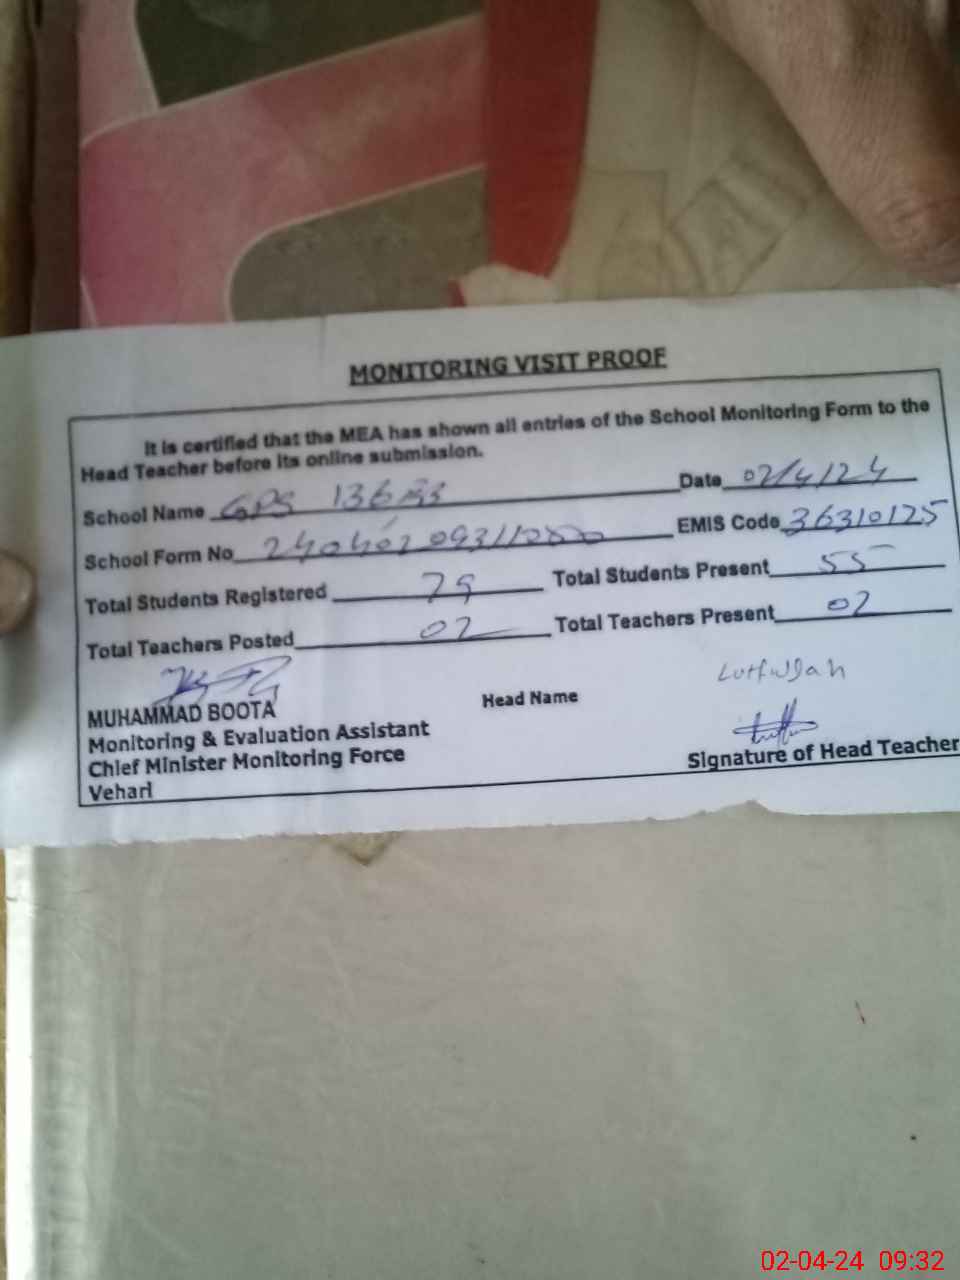 MONITORING VISIT PROOF
It is certified that the MEA has shown all entries of the School Monitoring Form to the
Head Teacher before its online submission.
School Name GPS 136 EB Date 02/4/24
School Form No EMIS Code 36310125
Total Students Registered 79 Total Students Present 55
Total Teachers Posted 02 Total Teachers Present 02
MUHAMMAD BOOTA Head Name Lutfullah
Monitoring & Evaluation Assistant
Chief Minister Monitoring Force Signature of Head Teacher
Vehari
02-04-24 09:32